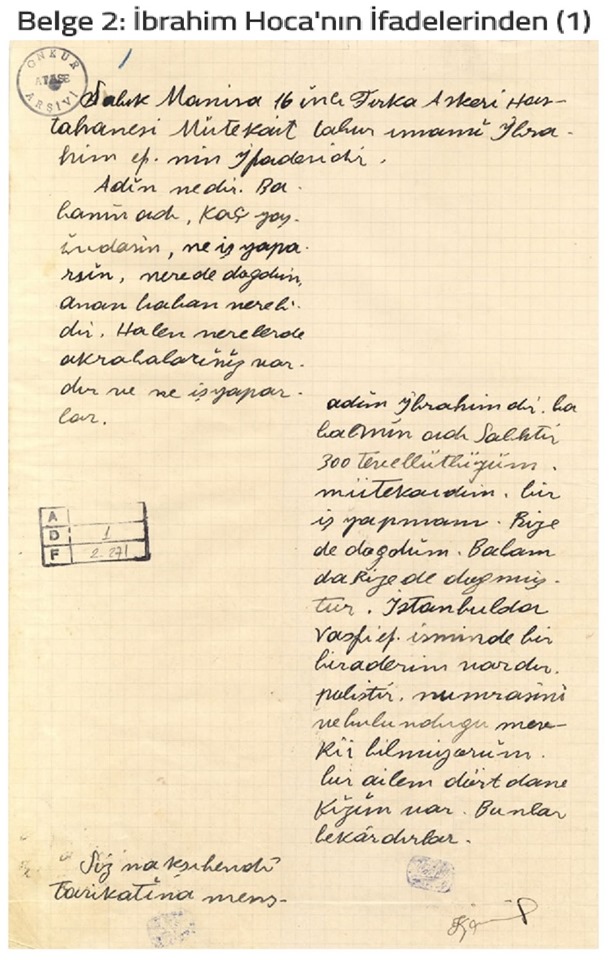 Belge 2: İbrahim Hoca'nın İfadelerinden (1)
ONKUR
ATASE
ARŞİVİ
Sabık Manisa 16 ıncı Fırka Askeri Has-
tahanesi Mütekait tabur imamı İbra-
him ef. nin İfadesidir.
Adın nedir. Ba-
banın adı, Kaç yaş-
ındasın, ne iş yapa-
rsın, nerede doğdun,
anan baban nereli-
dir. Halen nerelerde
akrabalarınız var-
dır ve ne iş yapar-
lar.
adım İbrahim dir. ba
bamın adı Salihtir
300 tevellütlüyüm.
mütekaidim. bir
iş yapmam. Rize
de doğdum. Babam
da Rize de doğmuş-
tur. İstanbulda
Vasfi ef. isminde bir
biraderim vardır.
polistir. numrasını
ve bulunduğu mev-
kii bilmiyorum.
bir ailem dört dane
Kızım var. Bunlar
bekârdırlar.
A
D 1
F 2-271
Siz nakşibendi
tarikatına mens-